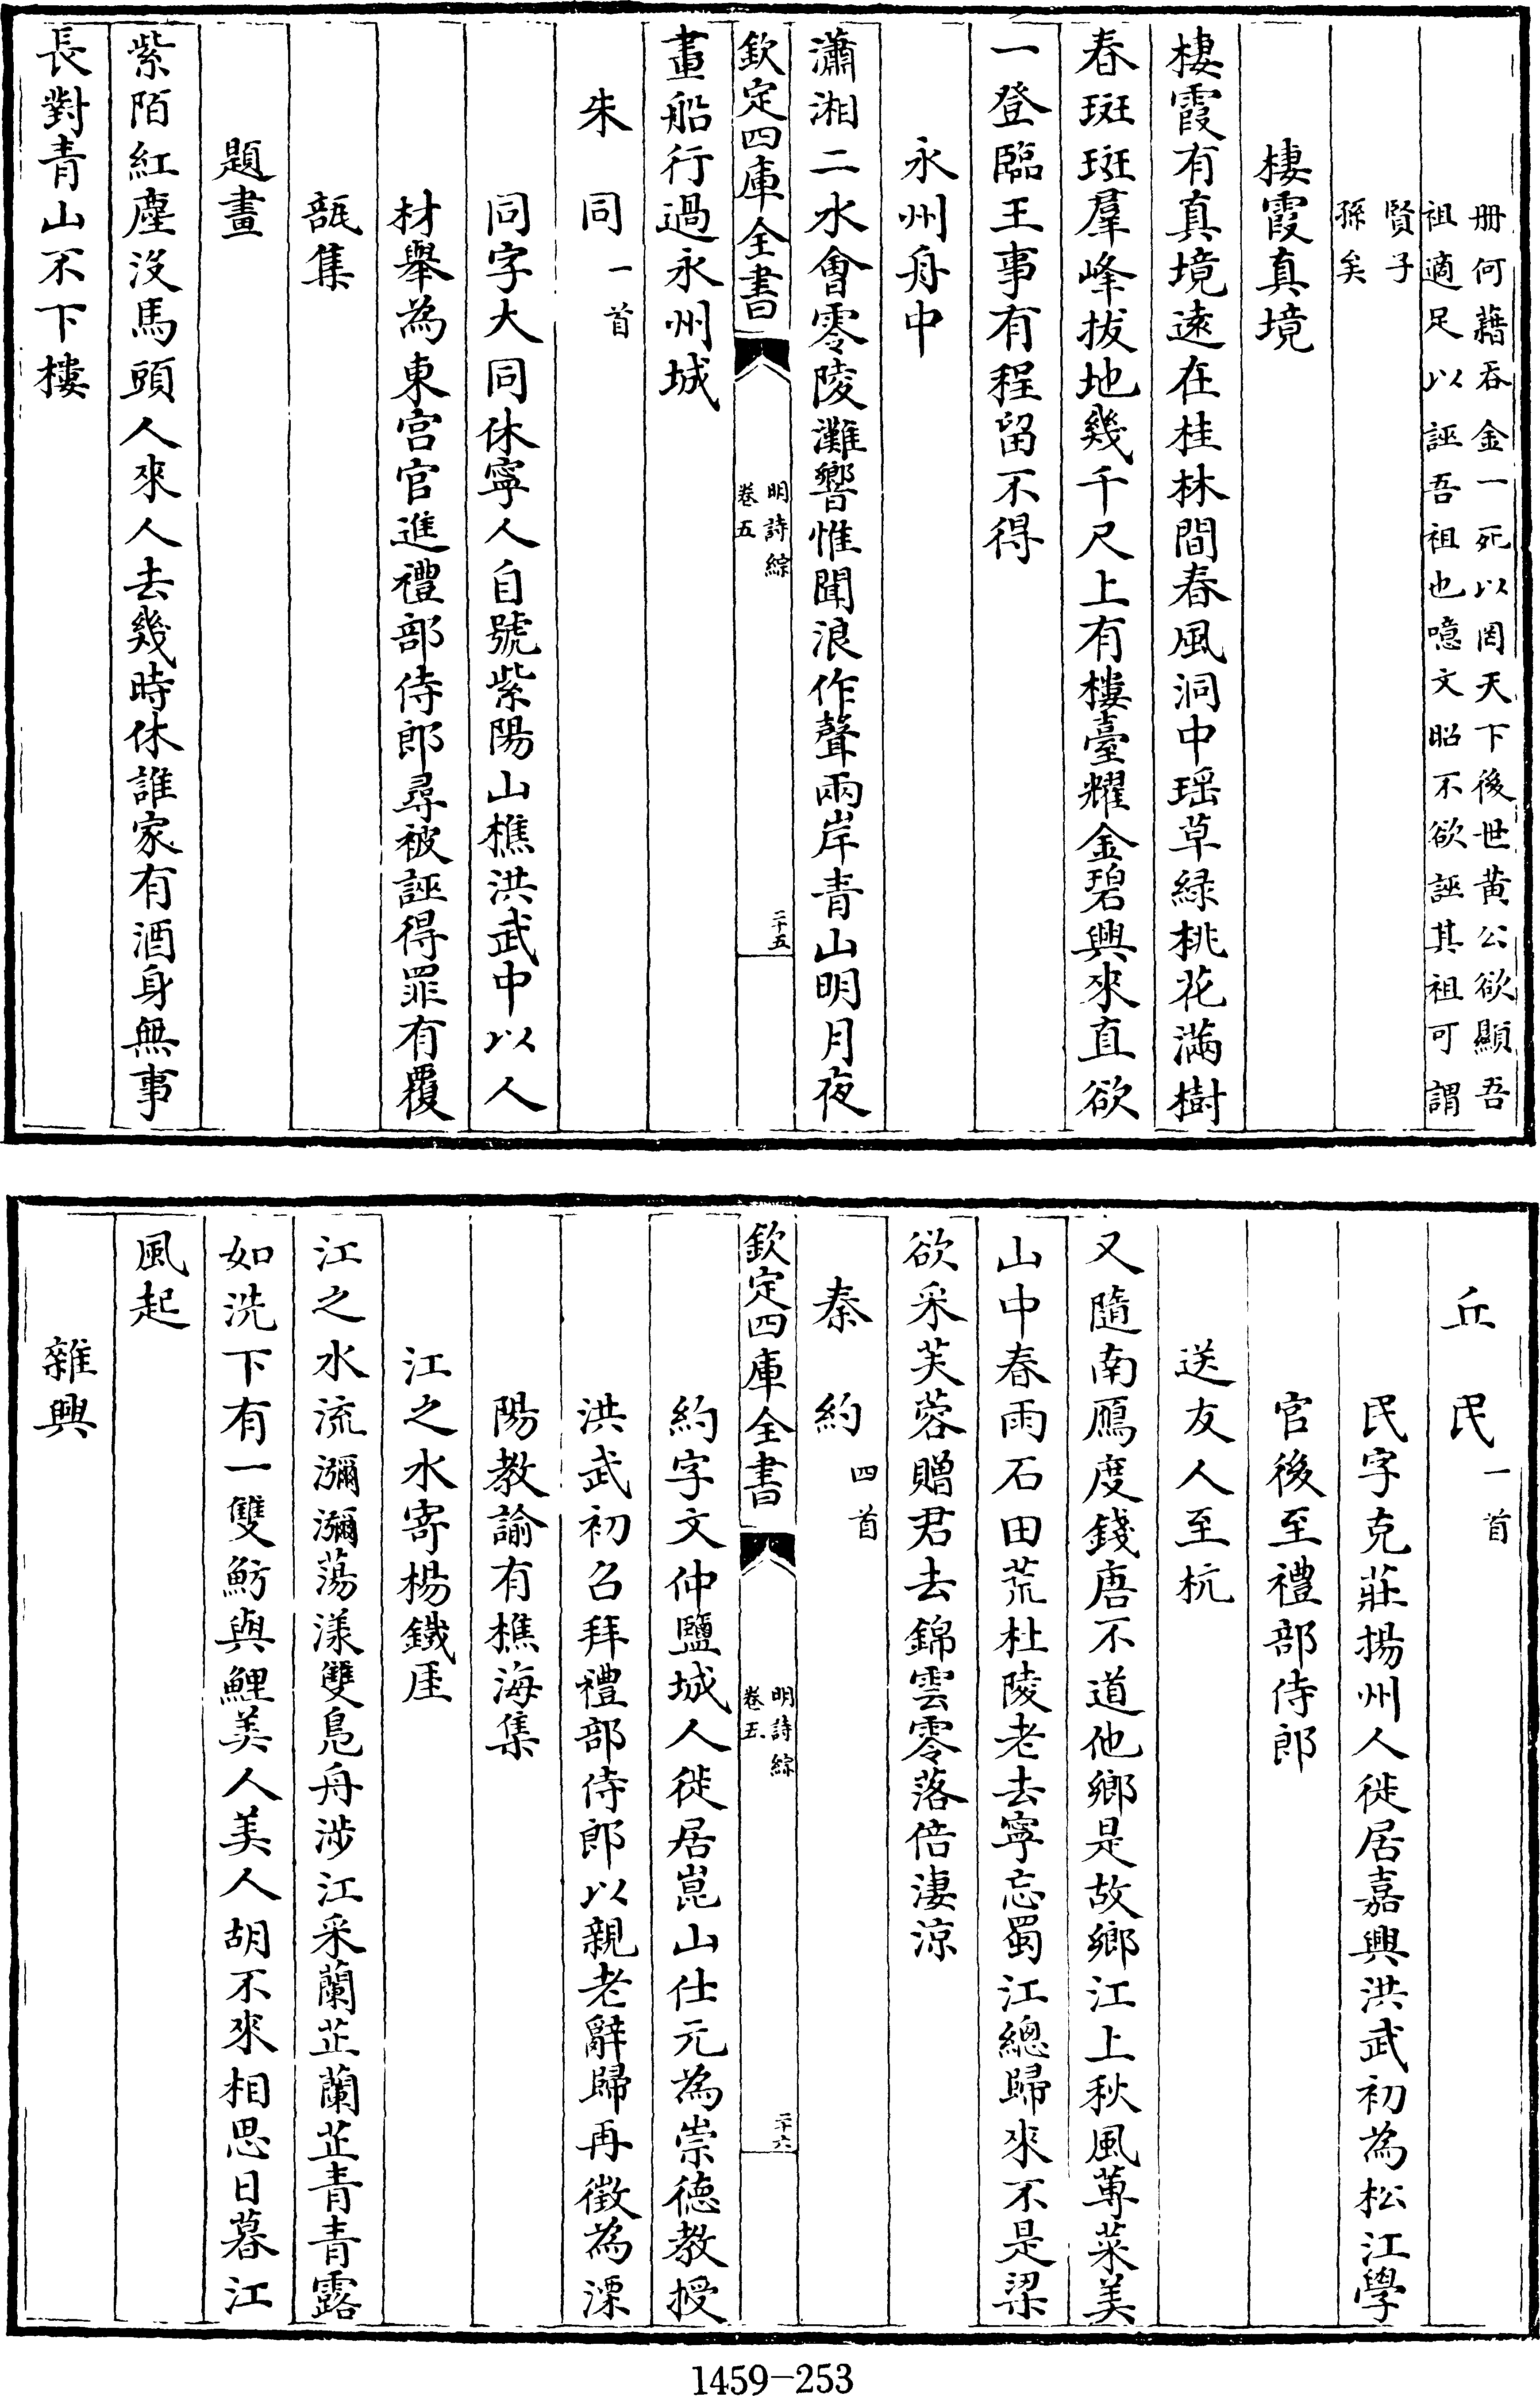 冊何藉吞金一死以罔天下後世黄公欲顯吾
祖適足以誣吾祖也噫文昭不欲誣其祖可謂
賢子
孫矣
棲霞真境
棲霞有真境逺在桂林間春風洞中瑶草緑桃花滿樹
春斑斑羣峰拔地幾千尺上有樓臺耀金碧興來直欲
一登臨王事有程留不得
永州舟中
瀟湘二水會零陵灘響惟聞浪作聲兩岸青山明月夜
欽定四庫全書
明詩綜
卷五
二十五
畫船行過永州城
朱同 一首
同字大同休寧人自號紫陽山樵洪武中以人
材舉為東宫官進禮部侍郎尋被誣得罪有覆
瓿集
題畫
紫陌紅塵沒馬頭人來人去幾時休誰家有酒身無事
長對青山不下樓
丘民 一首
民字克莊揚州人徙居嘉興洪武初為松江學
官後至禮部侍郎
送友人至杭
又隨南鴈度錢唐不道他鄉是故鄉江上秋風蓴菜美
山中春雨石田荒杜陵老去寧忘蜀江總歸來不是梁
欲采芙蓉贈君去錦雲零落倍淒涼
秦約 四首
欽定四庫全書
明詩綜
卷五
二十六
約字文仲鹽城人徙居崑山仕元為崇德教授
洪武初召拜禮部侍郎以親老辭歸再徵為溧
陽教諭有樵海集
江之水寄楊鐵厓
江之水流瀰瀰蕩漾雙鳧舟涉江采蘭芷蘭芷青青露
如洗下有一雙魴與鯉美人美人胡不來相思日暮江
風起
雜興
1459-253